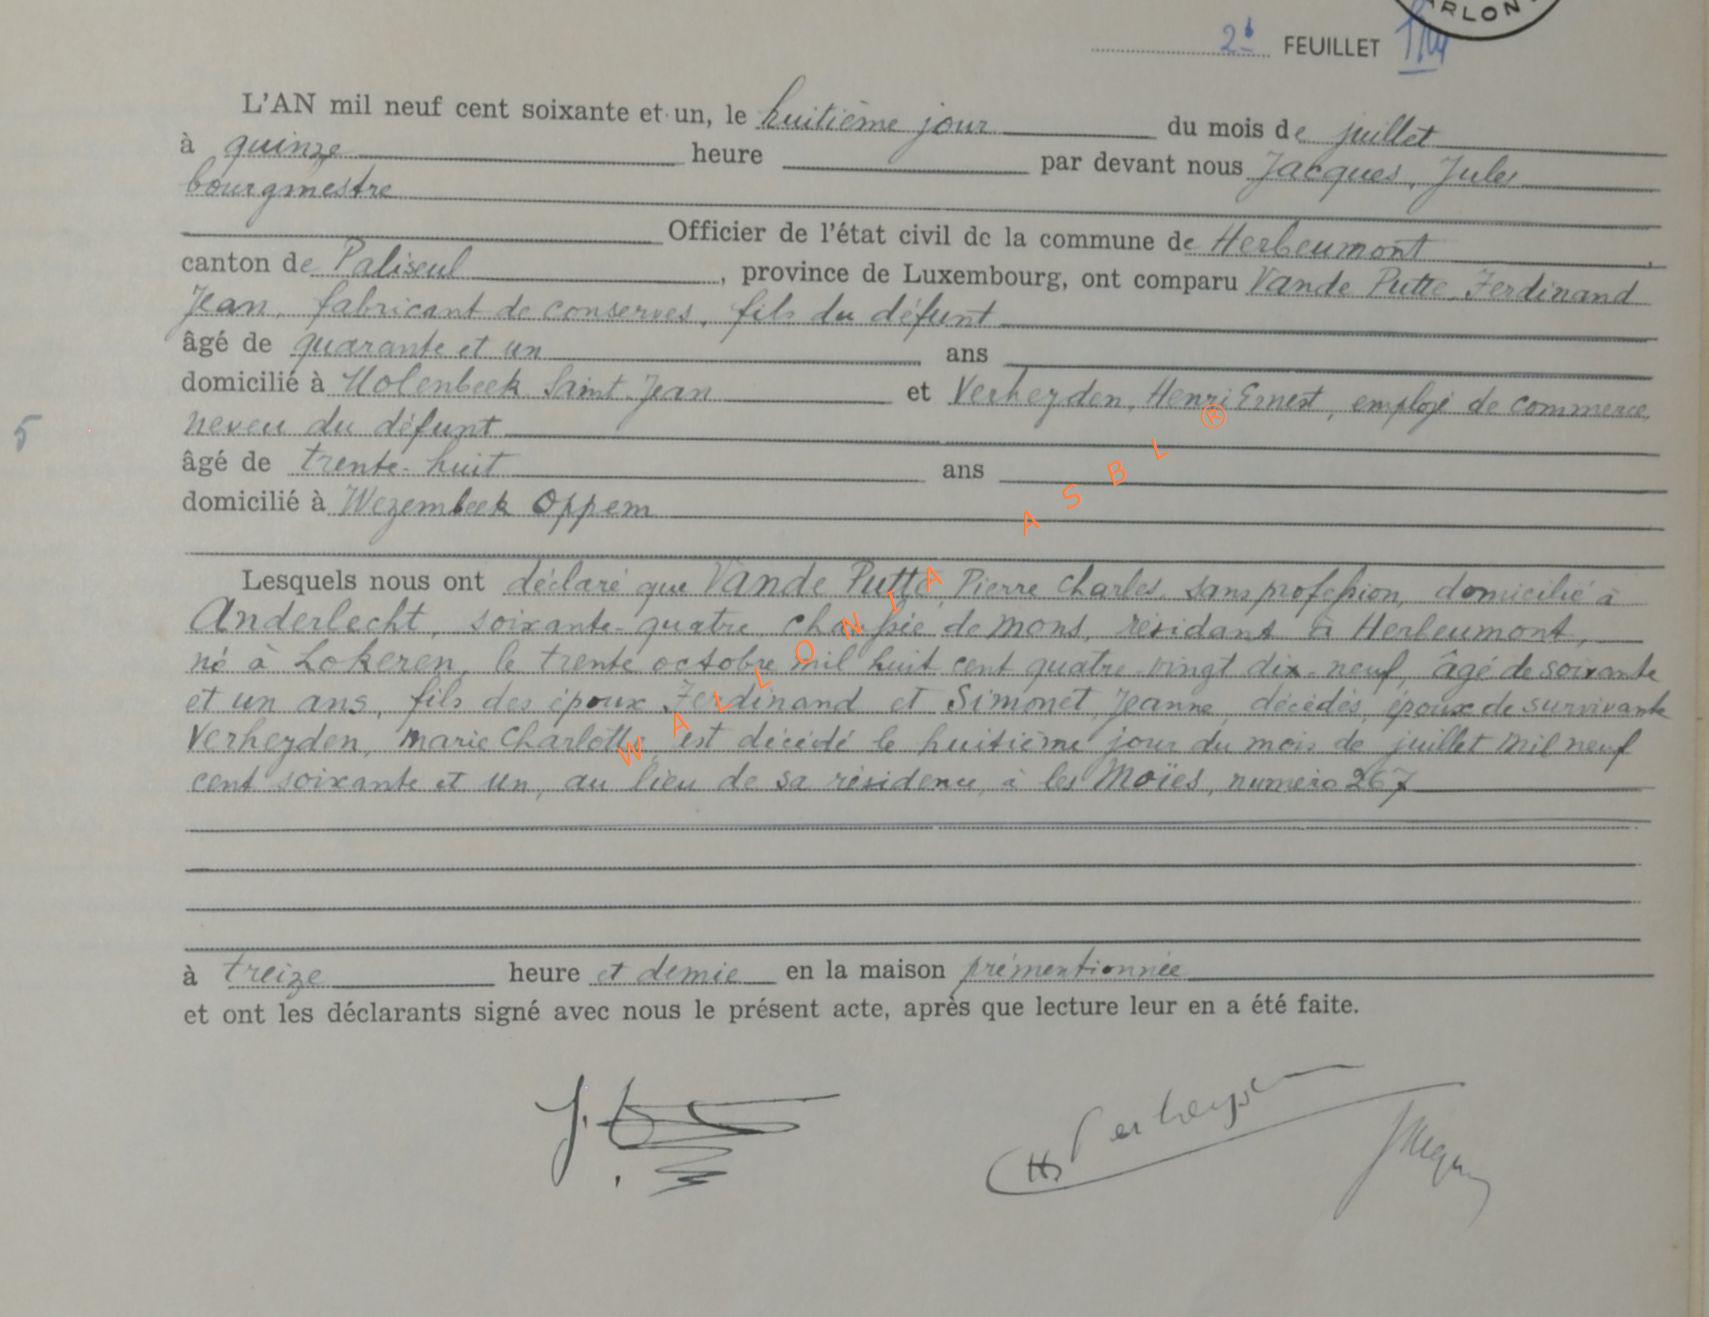 ARLON
2è FEUILLET
L'AN mil neuf cent soixante et un, le huitième jour du mois de juillet
à quinze heure par devant nous Jacques, Jules
bourgmestre
Officier de l'état civil de la commune de Herbeumont
canton de Paliseul, province de Luxembourg, ont comparu Vande Putte Ferdinand
Jean, fabricant de conserves, fils du défunt
âgé de quarante et un ans
domicilié à Molenbeek Saint-Jean et Verheyden, Henri Ernest, employé de commerce,
5
neveu du défunt
âgé de trente-huit ans
domicilié à Wezembeek Oppem
Lesquels nous ont déclaré que Vande Putte, Pierre Charles, sans profession, domicilié à
Anderlecht, soixante-quatre, chaussée de Mons, résidant à Herbeumont,
né à Lokeren, le trente octobre mil huit cent quatre-vingt dix-neuf, âgé de soixante
et un ans, fils des époux Ferdinand et Simonet, Jeanne, décédés, époux de survivante
Verheyden, Marie Charlotte, est décédé le huitième jour du mois de juillet mil neuf
cent soixante et un, au lieu de sa résidence, à les Moïes, numéro 267
à treize heure et demie en la maison prémentionnée
et ont les déclarants signé avec nous le présent acte, après que lecture leur en a été faite.
Verheyden
Jacques
WALLONIA ASBL ®